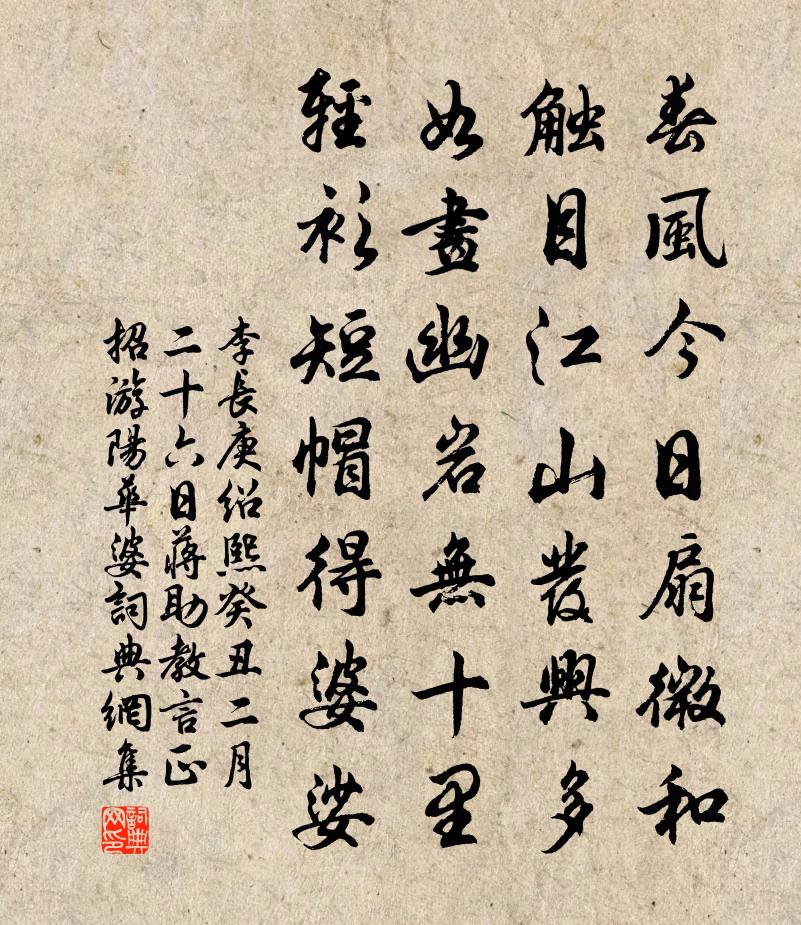 春風今日扇微和
觸目江山發興多
如畫幽岩無十里
輕衫短帽得婆娑
李長庚紹熙癸丑二月
二十六日蔣助教言正
招游陽華婆詞典網集
詞典
网印